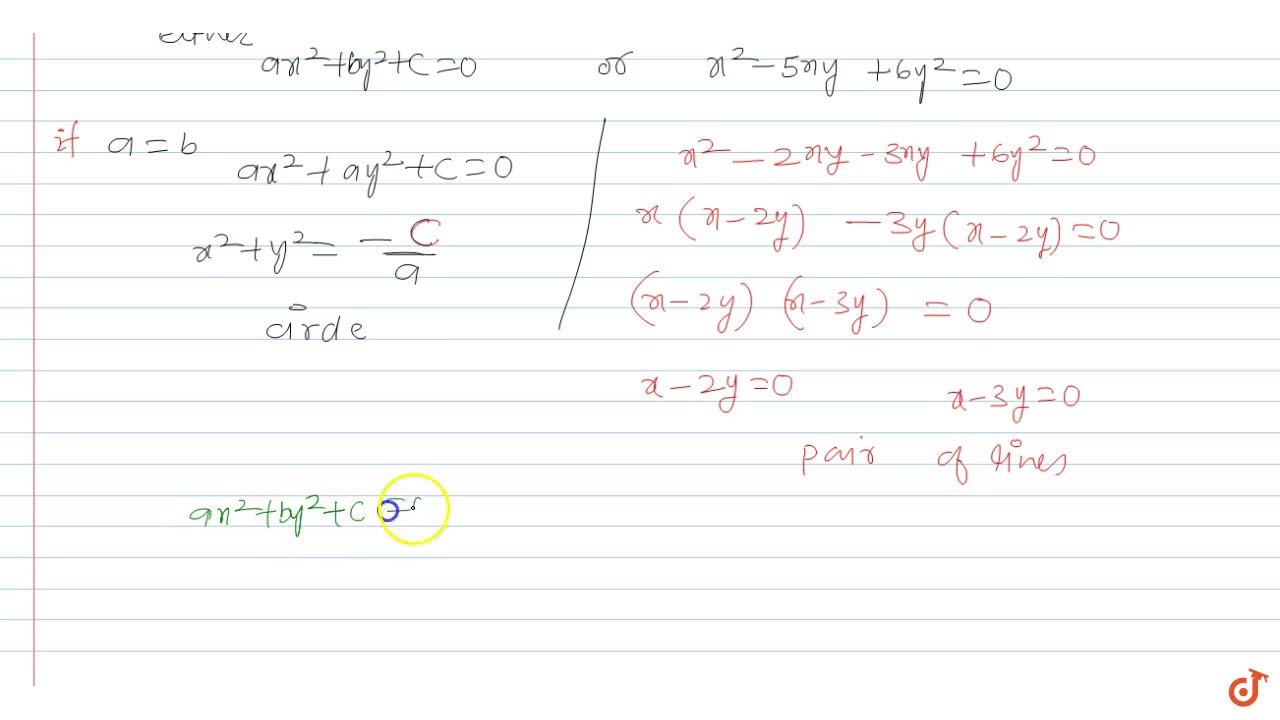 either
ax²+by²+C=0 or x²-5xy+6y²=0
if a=b
ax²+ay²+C=0
x²+y²=-C/a
circle
x²-2xy-3xy+6y²=0
x(x-2y)-3y(x-2y)=0
(x-2y)(x-3y)=0
x-2y=0 x-3y=0
pair of lines
ax²+by²+C